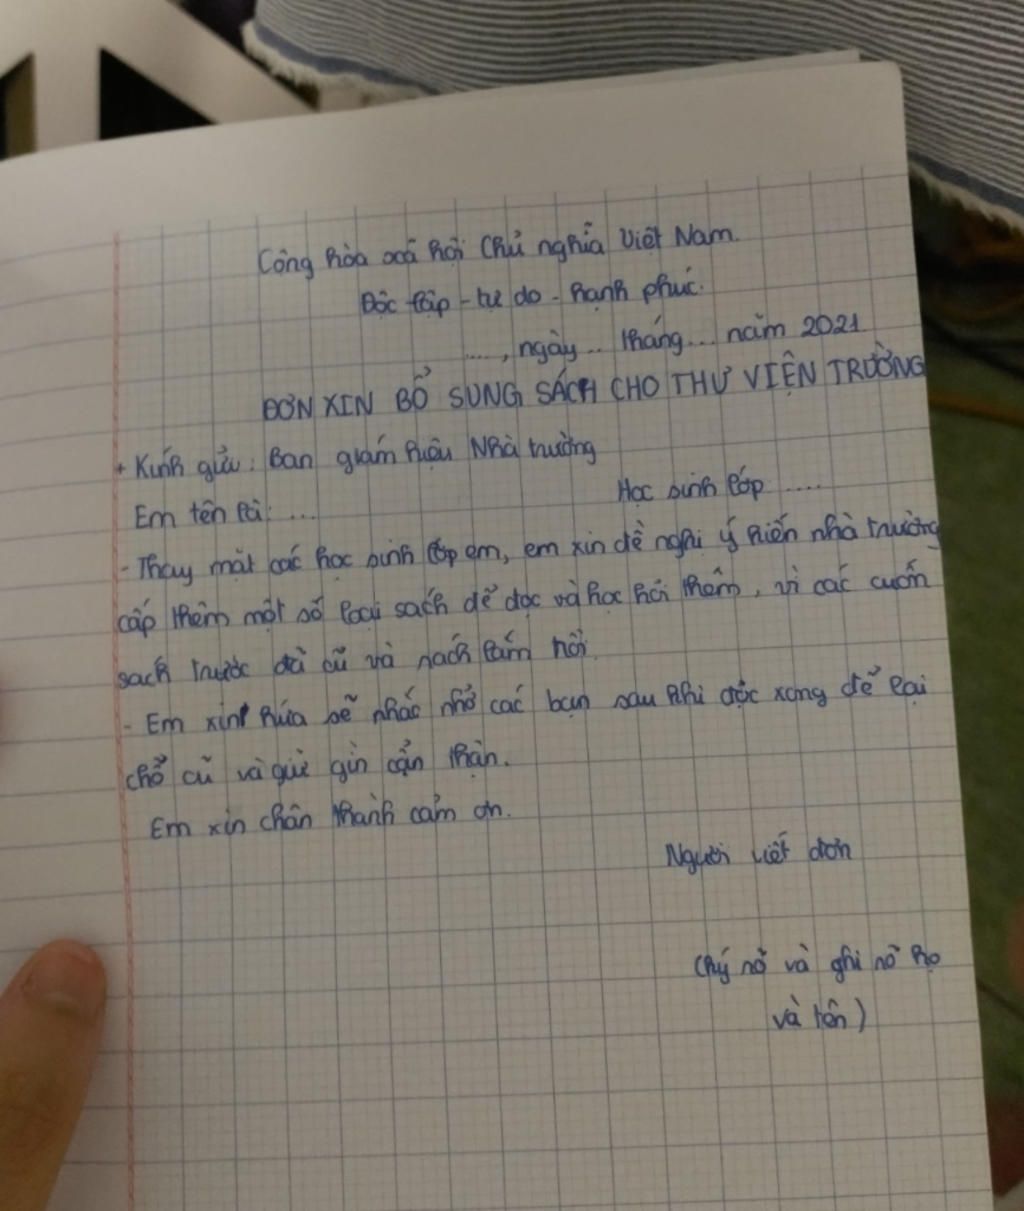 Công hòa xã hội Chủ nghĩa Việt Nam.
Độc lập - tự do - hạnh phúc.
...., ngày .. tháng ... năm 2021
ĐƠN XIN BỔ SUNG SÁCH CHO THƯ VIỆN TRƯỜNG
+ Kính gửi: Ban giám hiệu Nhà trường
Em tên là: ... Học sinh lớp ....
- Thay mặt các học sinh lớp em, em xin đề nghị ý kiến nhà trường
cấp thêm một số loại sách để đọc và học hỏi thêm, vì các cuốn
sách trước đã cũ và rách lắm rồi
- Em xin hứa sẽ nhắc nhở các bạn sau khi đọc xong để lại
chỗ cũ và giữ gìn cẩn thận.
Em xin chân thành cảm ơn.
Người viết đơn
(ký rõ và ghi rõ họ
và tên)